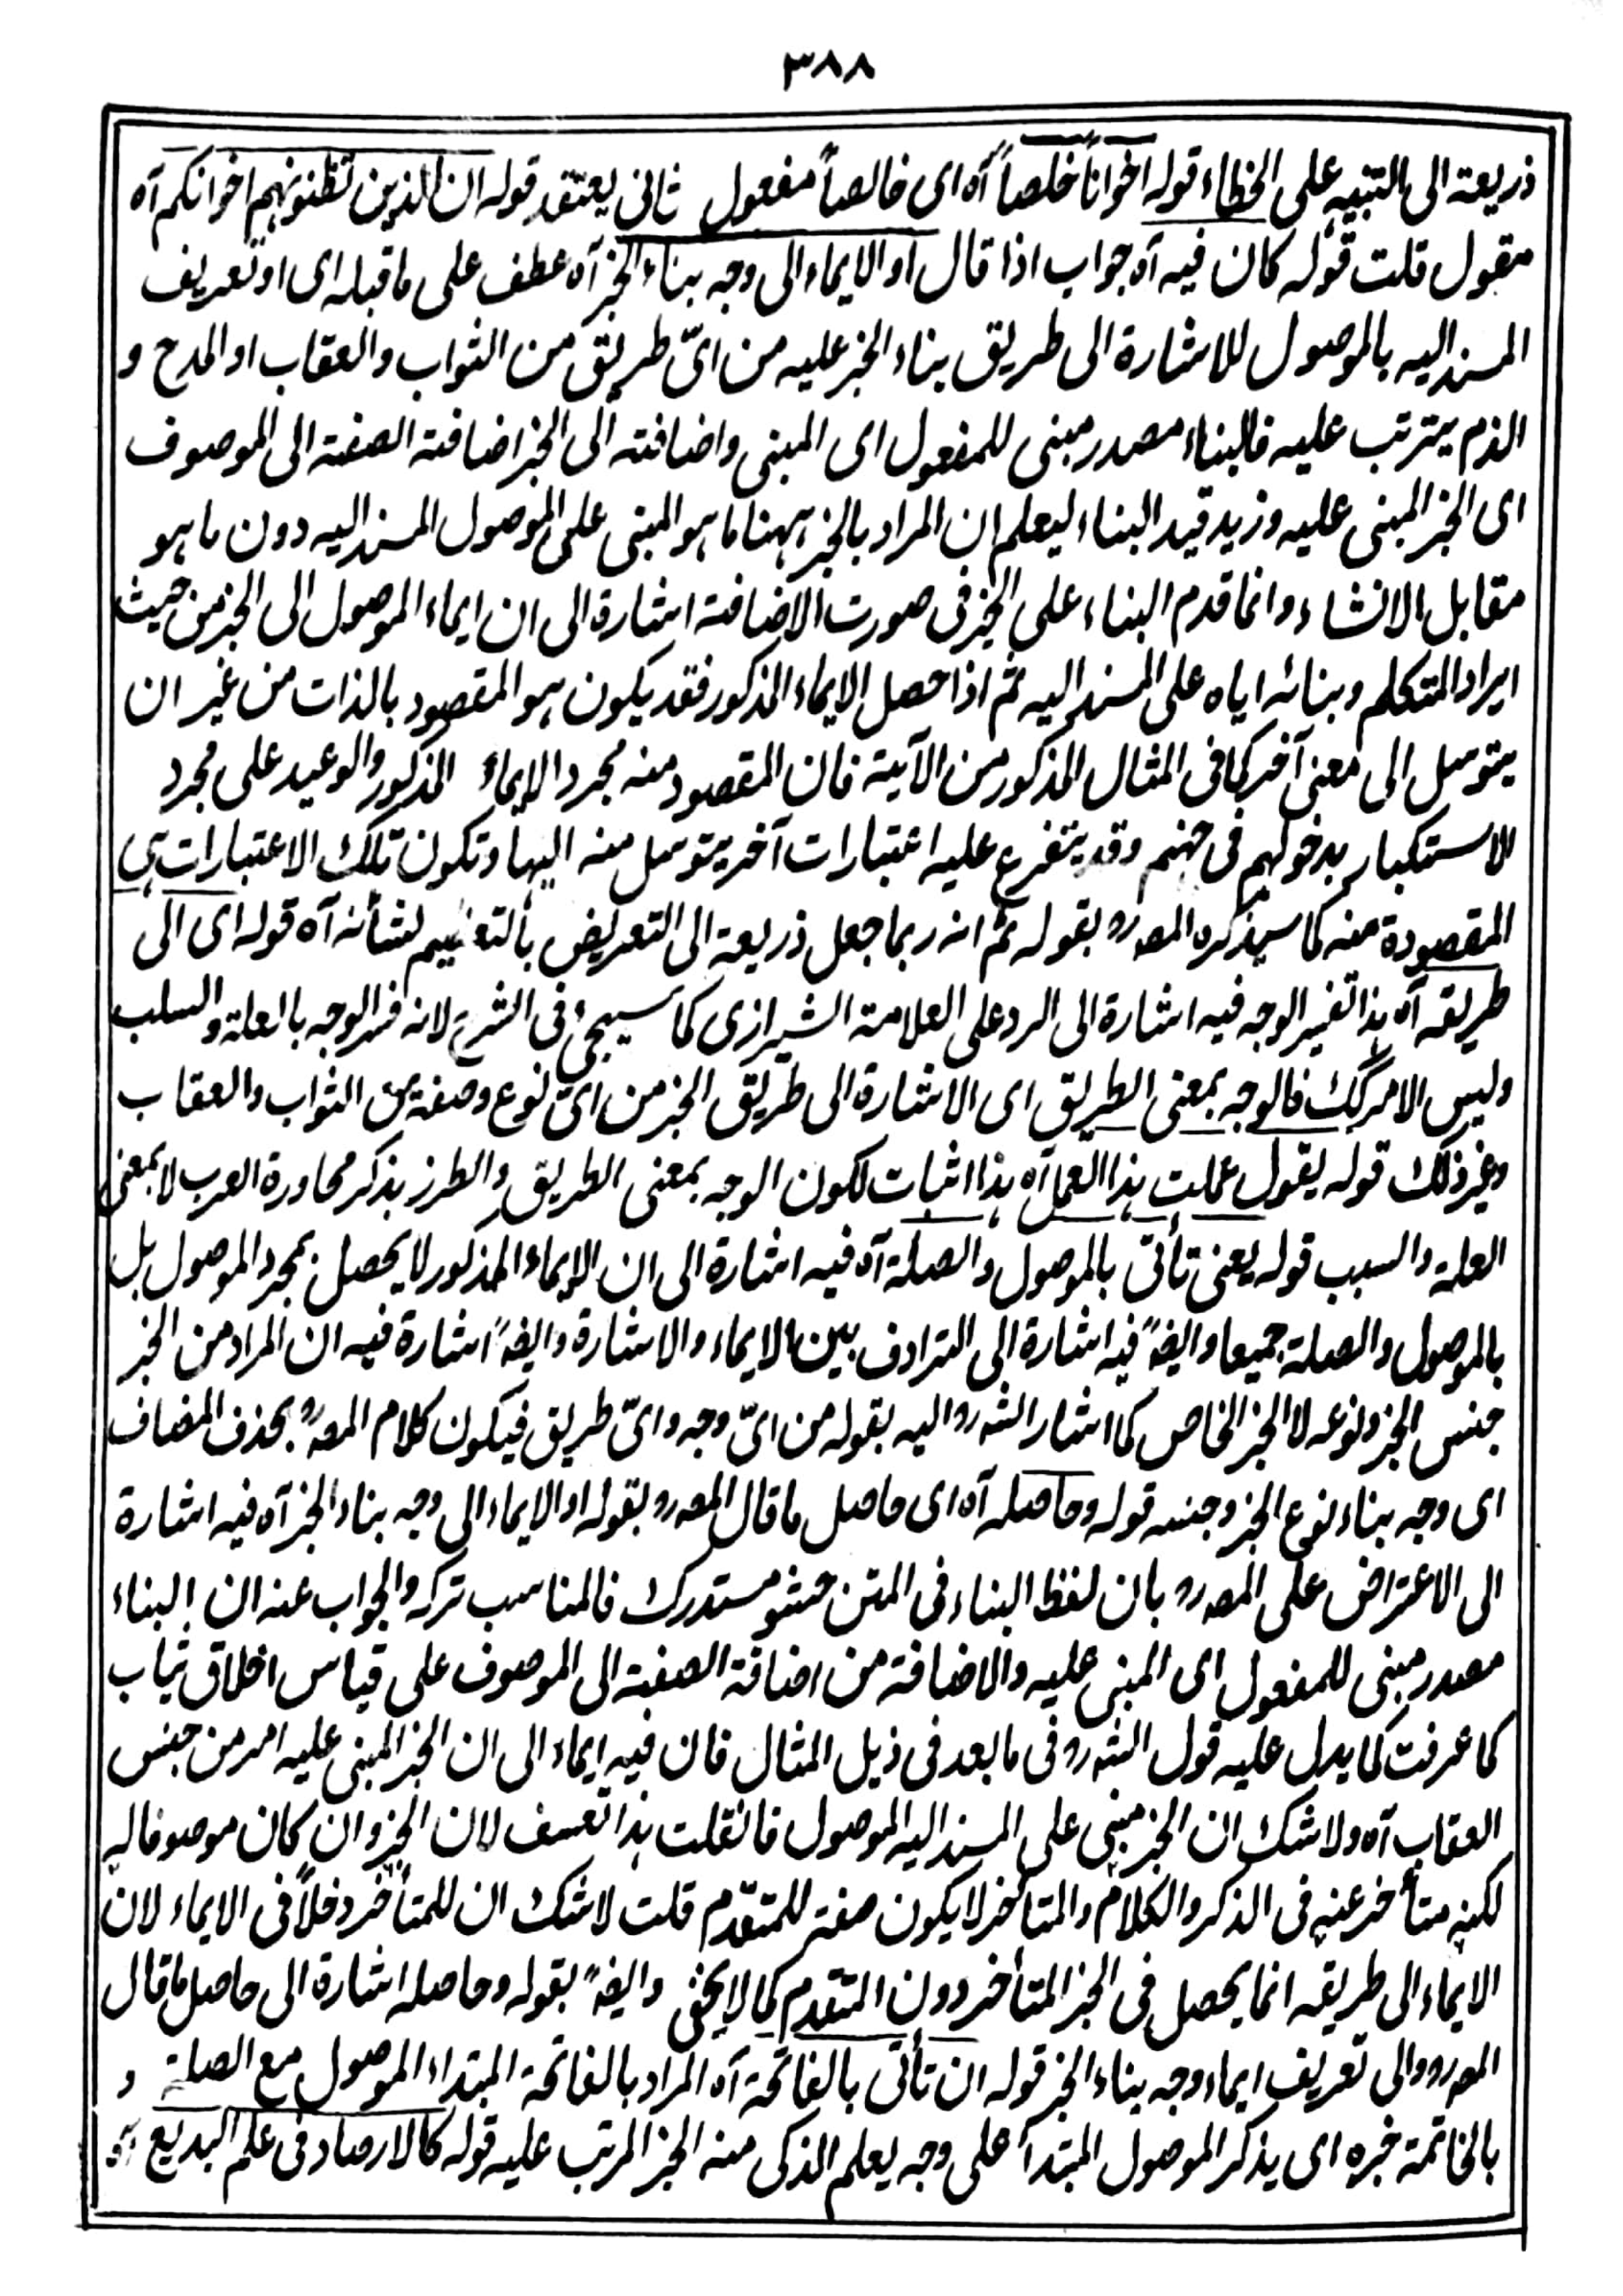 ٣٨٨
ذريعة الى التنبيه على الخطاء قوله اخواناً خلصاً آه اى خالصاً مفعول ثانى يعتقد قوله ان الذين تظنونهم اخوانكم آه
مقول قلت قوله كان فيه آه جواب اذا قال او الايماء الى وجه بناء الخبر آه عطف على ما قبله اى او تعريف
المسند اليه بالموصول للاشارة الى طريق بناء الخبر عليه من اىّ طريق من الثواب والعقاب او المدح و
الذم يترتب عليه فالبناء مصدر مبنى للمفعول اى المبنى واضافته الى الخبر اضافة الصفة الى الموصوف
اى الخبر المبنى عليه وزيد قيد البناء ليعلم ان المراد بالخبر ههنا ما هو المبنى على الموصول المسند اليه دون ما هو
مقابل الانشاء وانما قدم البناء على الخبر فى صورت الاضافة اشارة الى ان ايماء الموصول الى الخبر من حيث
ايراد المتكلم وبنائه اياه على المسند اليه ثم اذا حصل الايماء المذكور فقد يكون هو المقصود بالذات من غير ان
يتوسل الى معنى آخر كما فى المثال المذكور من الآية فان المقصود منه مجرد الايماء المذكور والوعيد على مجرد
الاستكبار بدخولهم فى جهنم وقد يتفرع عليه اعتبارات آخر يتوسل منه اليها وتكون تلك الاعتبارات هى
المقصودة منه كما سيذكره المصرو بقوله ثم انه ربما جعل ذريعة الى التعريض بالتعظيم لشأنه آه قوله اى الى
طريقه آه هذا تفسير الوجه فيه اشارة الى الرد على العلامة الشيرازى كما سيجئ فى الشرح لانه فسر الوجه بالعلة والسلب
وليس الامر كك فالوجه بمعنى الطريق اى الاشارة الى طريق الخبر من اىّ نوع وصفة من الثواب والعقاب
وغير ذلك قوله يقول عملت هذا العمل آه هذا اثبات لكون الوجه بمعنى الطريق والطرز بذكر محاورة العرب لا بمعنى
العلة والسبب قوله يعنى تأتى بالموصول والصلة آه فيه اشارة الى ان الايماء المذكور لا يحصل بمجرد الموصول بل
بالموصول والصلة جميعا وايضً فيه اشارة الى الترادف بين الايماء والاشارة وايضً اشارة فيه ان المراد من الخبر
جنس الخبر ونوعه لا الخبر الخاص كما اشار الشرو اليه بقوله من اىّ وجه واىّ طريق فيكون كلام المصرو بحذف المضاف
اى وجه بناء نوع الخبر وجنسه قوله وحاصله آه اى حاصل ما قال المصرو بقوله او الايماء الى وجه بناء الخبر آه فيه اشارة
الى الاعتراض على المصرو بان لفظ البناء فى المتن حشو مستدرك فالمناسب تركه والجواب عنه ان البناء
مصدر مبنى للمفعول اى المبنى عليه والاضافة من اضافة الصفة الى الموصوف على قياس اخلاق ثياب
كما عرفت كما يدل عليه قول الشرو فى ما بعد فى ذيل المثال فان فيه ايماء الى ان الخبر المبنى عليه امر من جنس
العقاب آه ولا شك ان الخبر مبنى على المسند اليه الموصول فانقلت هذا تعسف لان الخبر وان كان موصوفا له
لكنه متأخر عنه فى الذكر والكلام والمتأخر لا يكون صفة للمتقدّم قلت لا شك ان للمتأخر دخلاً فى الايماء لان
الايماء الى طريقه انما يحصل فى الخبر المتأخر دون المتقدم كما لا يخفى وايضً بقوله وحاصله اشارة الى حاصل ما قال
المصرو والى تعريف ايماء وجه بناء الخبر قوله ان تأتى بالفاتحة آه المراد بالفاتحة المبتداء الموصول مع الصلة و
بالخاتمة خبره اى يذكر الموصول المبتدأ على وجه يعلم الذكى منه الخبر المرتب عليه قوله كالارصاد فى علم البديع آه